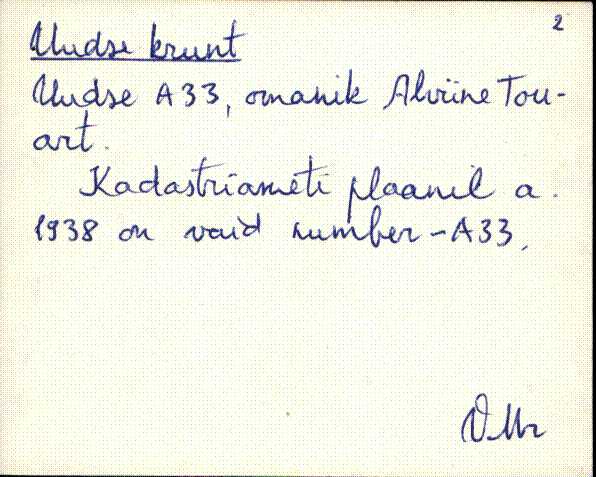 2
Uudse krunt
Uudse A33, omanik Alviine Tou-
art.
Kadastriameti plaanil a.
1938 on vaid number - A33.